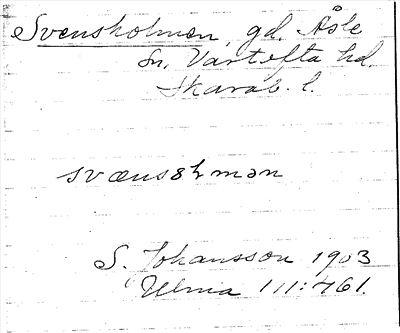 Svensholmen, gd. Åsle
sn, Vartofta hd.
Skarab. l.
svænsȣhmən
S. Johansson 1903
Ulma 111:461.